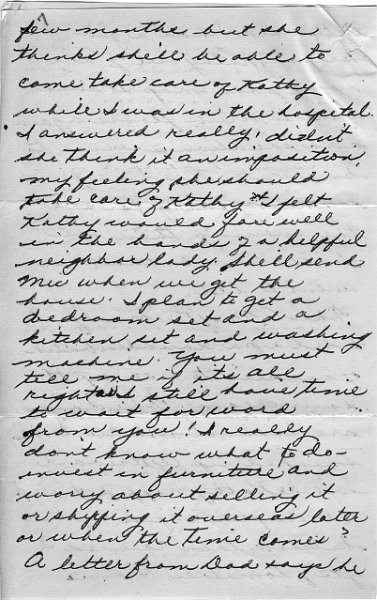 few months but she
thinks she'll be able to
come take care of Kathy
while I was in the hospital.
I answered really, didn't
she think it an imposition,
my feeling she should
take care of Kathy & I felt
Kathy would fare well
in the hands of a helpful
neighbor lady. She'll send
when we get the
house. I plan to get a
bedroom set and a
kitchen set and washing
machine. You must
tell me if its all
right I still have time
to wait for word
from you! I really
don't know what to do-
invest in furniture and
worry about selling it
or shipping it overseas later
or when the time comes?
A letter from Dad says he